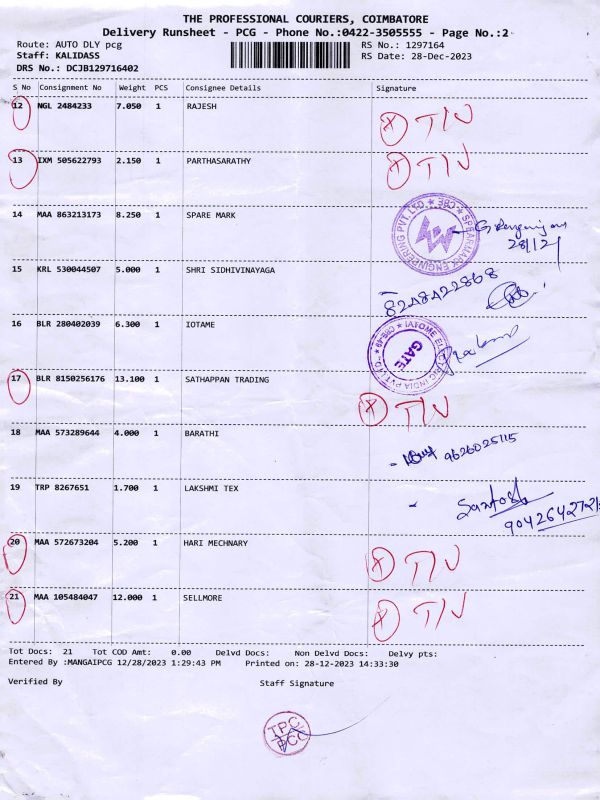 THE PROFESSIONAL COURIERS, COIMBATORE
Delivery Runsheet - PCG - Phone No.:0422-3505555 - Page No.:2
Route: AUTO DLY pcg RS No.: 1297164
Staff: KALIDASS RS Date: 28-Dec-2023
DRS No.: DCJB129716402
S No Consignment No Weight PCS Consignee Details Signature
12 NGL 2484233 7.050 1 RAJESH
13 IXM 505622793 2.150 1 PARTHASARATHY
14 MAA 863213173 8.250 1 SPARE MARK
SPEARMARK ENGINEERING PVT.LTD. ★ CBE ★
28/12/
15 KRL 530044507 5.000 1 SHRI SIDHIVINAYAGA
8248422868
16 BLR 280402039 6.300 1 IOTAME
GATE
17 BLR 8150256176 13.100 1 SATHAPPAN TRADING
18 MAA 573289644 4.000 1 BARATHI
9626025115
19 TRP 8267651 1.700 1 LAKSHMI TEX
Santosh
20 MAA 572673204 5.200 1 HARI MECHNARY
21 MAA 105484047 12.000 1 SELLMORE
Tot Docs: 21 Tot COD Amt: 0.00 Delvd Docs: Non Delvd Docs: Delvy pts:
Entered By :MANGAIPCG 12/28/2023 1:29:43 PM Printed on: 28-12-2023 14:33:30
Verified By Staff Signature
TPC
PCG